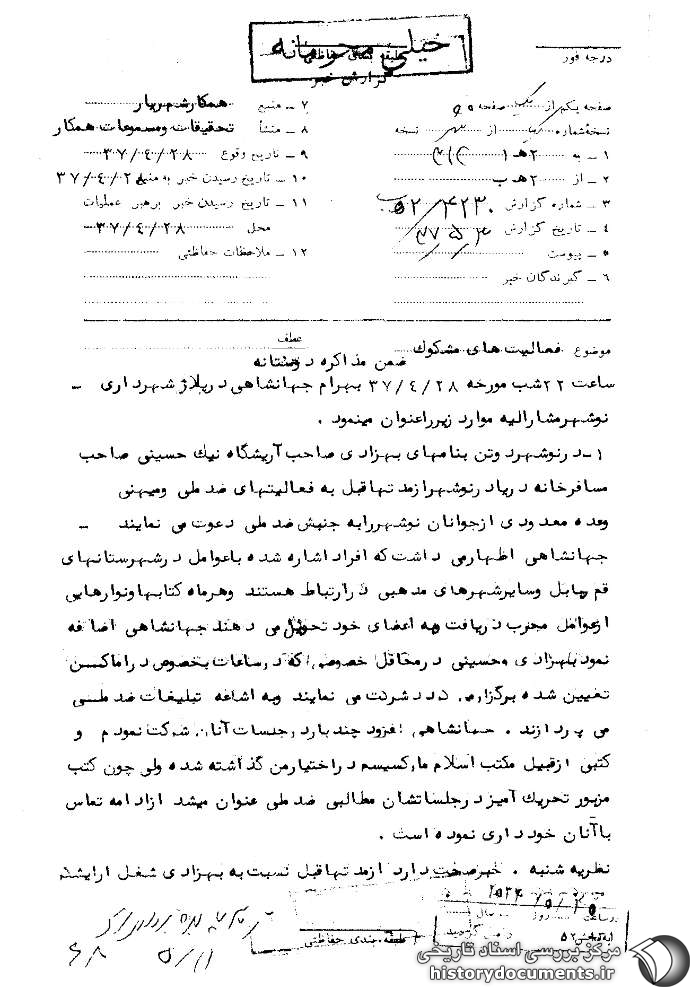 خیلی محرمانه
طبقه بندی حفاظتی
گزارش خبر
درجه فور
صفحه یکم از یک صفحه
نسخه شماره از نسخه
۱ ـ به ۲هـ ۱
۲ ـ از ۲هـ ب
۳ ـ شماره گزارش ۴۲۳۰/ ۵۲
۴ ـ تاریخ گزارش
۵ ـ پیوست
۶ ـ گیرندگان خبر
۷ ـ منبع همکار شهریار
۸ ـ منشأ تحقیقات ومسموعات همکار
۹ ـ تاریخ وقوع ۳۷/۴/۲۸
۱۰ ـ تاریخ رسیدن خبر به منبع ۳۷/۴/۲۸
۱۱ ـ تاریخ رسیدن خبر برهبر عملیات
محل ۳۷/۴/۲۸
۱۲ ـ ملاحظات حفاظتی
عطف
موضوع فعالیت های مشکوک
ضمن مذاکره دوستانه
ساعت ۲۲شب مورخه ۳۷/۴/۲۸ بهرام جهانشاهی درپلاژ شهرداری ـ
نوشهرمشارالیه موارد زیرراعنوان مینمود .
۱ـ درنوشهردوتن بنامهای بهزادی صاحب آریشگاه نیک حسینی صاحب
مسافرخانه دریاد رنوشهرازمدتهاقبل به فعالیتهای ضد ملی ومیهنی
وعده معدودی ازجوانان نوشهررابه جنبش ضد ملی دعوت می نمایند ـ
جهانشاهی اظهارمی داشت که افراد اشاره شده باعوامل درشهرستانهای
قم وبابل وسایرشهرهای مذهبی درارتباط هستند وهرماه کتابهاونوارهایی
ازعوامل مخرب دریافت وبه اعضای خود تحویل می دهند جهانشاهی اضافه
نمود بهزادی وحسینی درمحافل خصوصی که درساعات بخصوص دراماکن
تعیین شده برگزارمی گردد شرکت می نمایند وبه اشاعه تبلیغات ضد ملی
می پردازند . جهانشاهی افزود چندبار درجلسات آنان شرکت نمودم و
کتبی ازقبیل مکتب اسلام مارکسیسم دراختیارمن گذاشته شده ولی چون کتب
مزبور تحریک آمیز درجلساتشان مطالبی ضد ملی عنوان میشد ازادامه تماس
باآنان خود داری نموده است .
نظریه شنبه . خبرصحت دارد ازمدتهاقبل نسبت به بهزادی شغل ارایشگر
طبقه بندی حفاظتی
مرکز بررسی اسناد تاریخی
historydocuments.ir